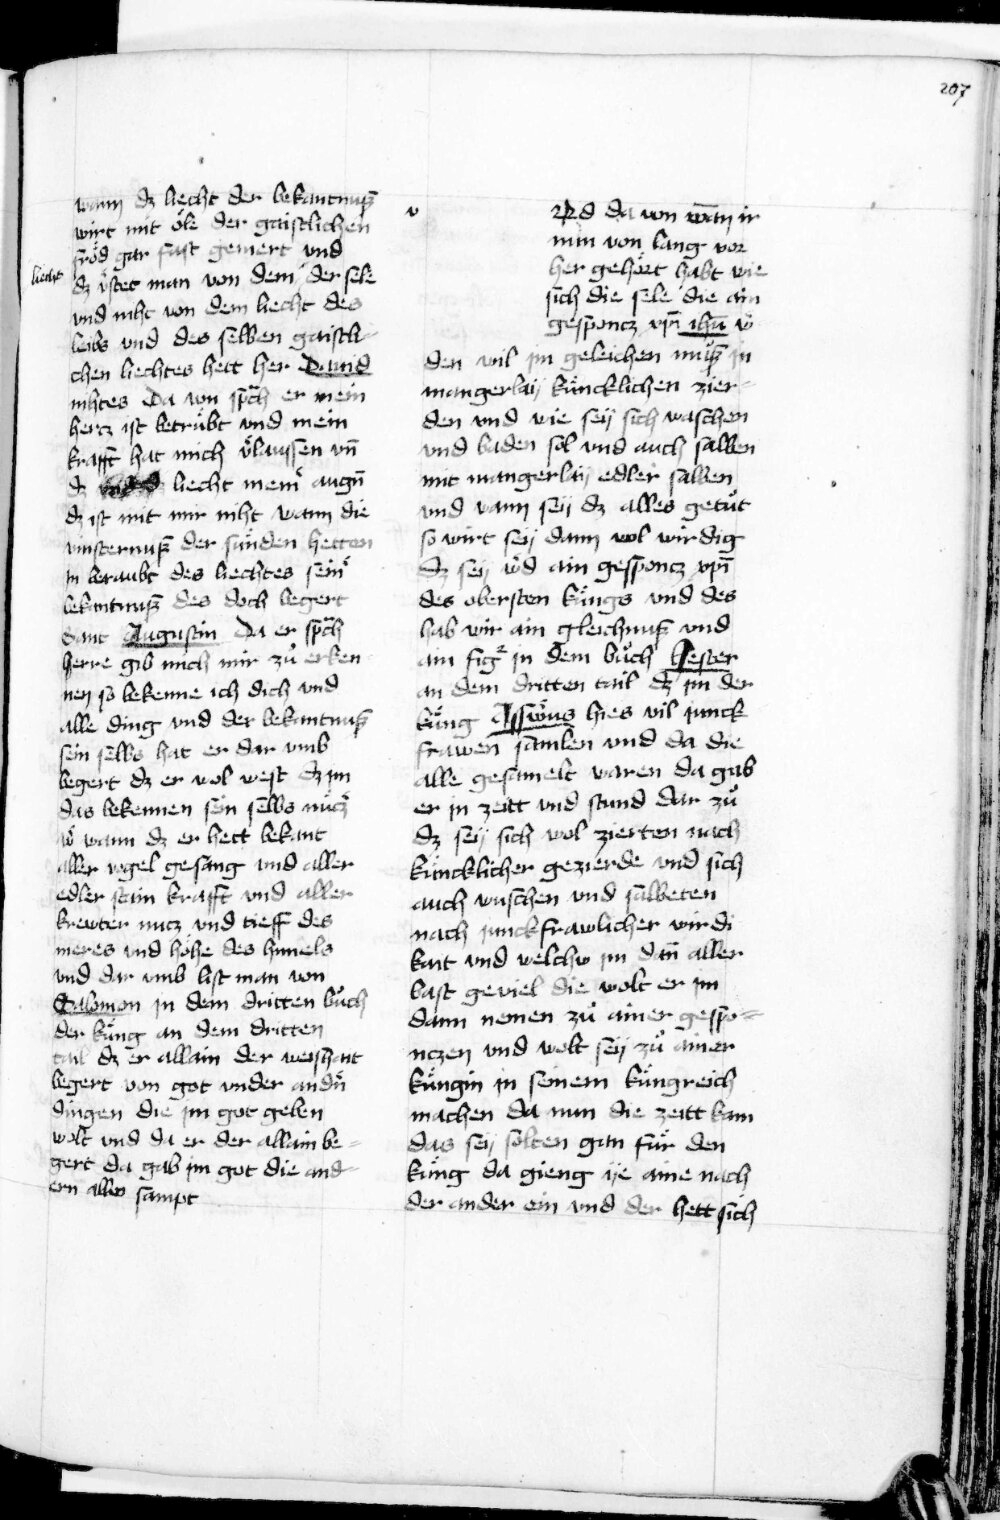 207
wann dz liecht der bekantnuß
wirt mit öle der gaistlichen
fröd gar fast gemert vnd
liecht
dz östet man von dem der sele
vnd niht von dem liecht des
leibs vnd des selben gaistli-
chen liechtes hett her Dauid
nihtes Da von sprach er mein
hercz ist betrübt vnd mein
krafft hat mich vͦlaussen vn̄
dz liecht meinͦ augn̄
dz ist mit mir niht wann die
vinsternuß der sünden hetten
in beraubt des liechtes seinͦ
bekantnuß des doch begert
Sant Augustin Da er sprach
herre gib mich mir zuͦ erken
nen so bekenne ich dich vnd
alle ding vnd der bekantnuß
sein selbs hat er dar vmb
begert dz er wol west dz im
das bekennen sein selbs nüczͦ
wͦ wann dz er hett bekant
aller vogel gesang vnd aller
edler stain krafft vnd aller
krewter nucz vnd tieff des
meres vnd höhe des himels
vnd dar vmb list man von
Salomon in dem dritten buͦch
der küng an dem dritten
tail dz er allain der weishait
begert von got vnder andn̄
dingen die im got geben
wolt vnd da er der allain be-
gert da gab im got die and-
ern alles sampt
v
Vnd da von wann ir
nun von lang vor
her gehört habt wie
sich die sele die ain
gesponcz xp̄i ihū wͦ
den wil im geleichen muͦß in
mangerlaÿ küncklichen zier-
den vnd wie seÿ sich waschen
vnd baden sol vnd auch salben
mit mangerlaÿ edler salben
vnd wann seÿ dz alles getuͦt
so wirt seÿ dann wol wirdig
dz seÿ wͦd ain gesponcz xp̄i
des obersten küngs vnd des
hab wir ain gleichnuß vnd
ain figͬ in dem buͦch Hester
an dem dritten tail dz im der
küng Asswͦus hies vil junck
frawen samlen vnd da die
alle gesamelt waren da gab
er in zeitt vnd stund dar zuͦ
dz seÿ sich wol zierten nach
küncklicher gezierde vnd sich
auch wuschen vnd salbeten
nach junckfrawlicher wirdi
kait vnd welchw im dan̄ aller
bast geviel die wolt er im
dann nemen zuͦ ainer gespo-
nczen vnd wolt seÿ zuͦ ainer
küngin in seinem küngreich
machen da nun die zeitt kam
das seÿ solten gan für den
küng da gieng ÿe aine nach
der ander ein vnd der hett sich